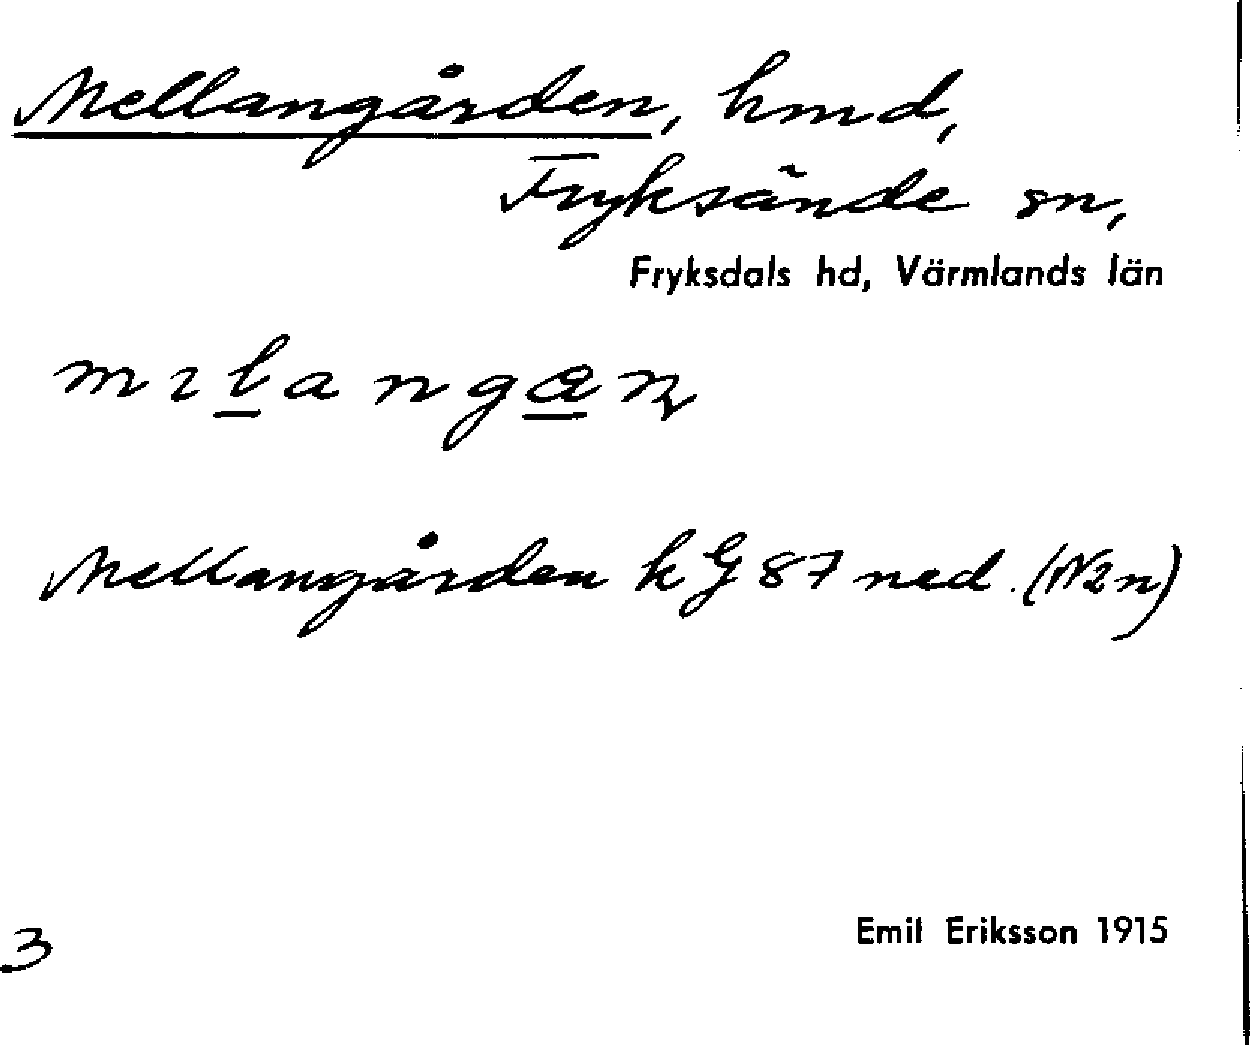 Mellangården, hmd,
Fryksände sn,
Fryksdals hd, Värmlands län
Mellangården k G 87 ned. (N2n)
3
Emil Eriksson 1915